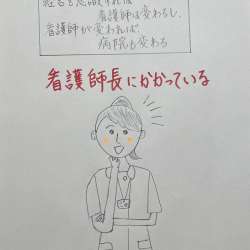 経営を意識すれば
看護師は変わるし、
看護師が変われば、
病院も変わる
看護師長にかかっている